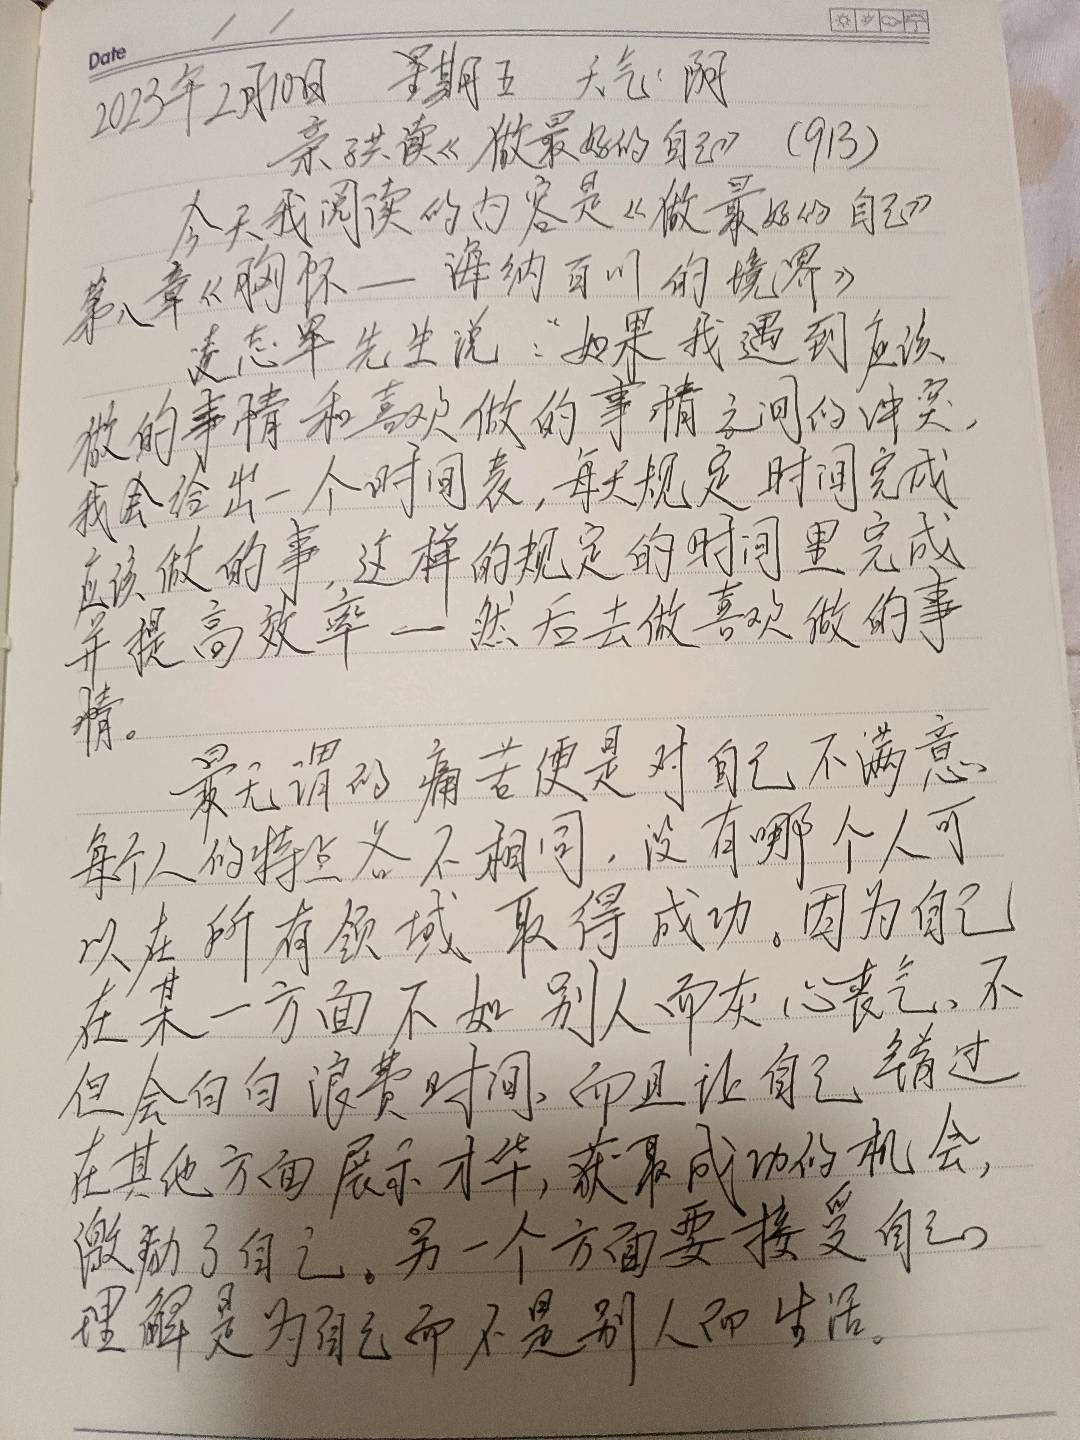 Date
2023年2月10日 星期五 天气：阴
亲子共读《做最好的自己》（913）
今天我阅读的内容是《做最好的自己》
第八章《胸怀—海纳百川的境界》
凌志军先生说："如果我遇到应该
做的事情和喜欢做的事情之间的冲突，
我会给出一个时间表，每天规定时间完成
应该做的事，这样的规定的时间里完成
并提高效率—然后去做喜欢做的事
情。
最无谓的痛苦便是对自己不满意、
每个人的特点各不相同，没有哪个人可
以在所有领域取得成功。因为自己
在某一方面不如别人而灰心丧气、不
但会白白浪费时间、而且让自己错过
在其他方面展示才华，获取成功的机会，
激励了自己。另一个方面要接受自己、
理解是为自己而不是别人而生活。